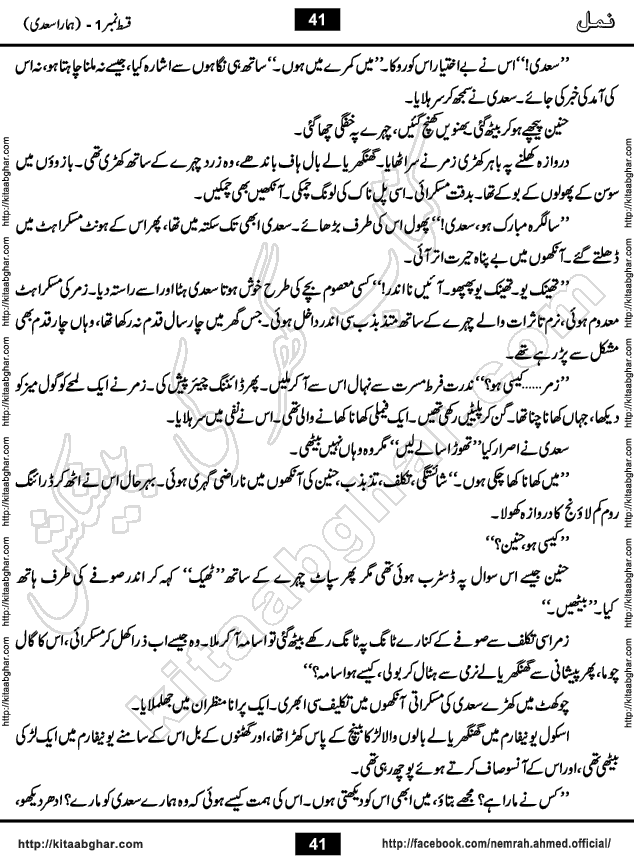 نمل 41 قسط نمبر 1 - (ہمارا سعدی)
’’سعدی!‘‘ اس نے بے اختیار اس کو روکا۔ ’’میں کمرے میں ہوں۔‘‘ ساتھ ہی نگاہوں سے اشارہ کیا، جیسے نہ ملنا چاہتا ہو، نہ اس
کی آمد کی خبر کی جائے۔ سعدی نے سمجھ کر سر ہلایا۔
حنین پیچھے ہو کر بیٹھ گئی بھنویں کھنچ گئیں، چہرے پہ خفگی چھا گئی۔
دروازہ کھلنے پہ باہر کھڑی زمر نے سر اٹھایا۔ گھنگھریالے بال ہاف باندھے، وہ زرد چہرے کے ساتھ کھڑی تھی۔ بازوؤں میں
سوسن کے پھولوں کے بوکے تھا۔ بدقت مسکرائی۔ اسی پل ناک کی لونگ چمکی۔ آنکھیں بھی چمکیں۔
’’سالگرہ مبارک ہو، سعدی!‘‘ پھول اس کی طرف بڑھائے۔ سعدی ابھی تک سکتہ میں تھا، پھر اس کے ہونٹ مسکراہٹ میں
ڈھلتے گئے۔ آنکھوں میں بے پناہ حیرت اتر آئی۔
’’تھینک یو۔ تھینک یو پھپھو۔ آئیں نا اندر!‘‘ کسی معصوم بچے کی طرح خوش ہوتا سعدی ہٹا اور اسے راستہ دیا۔ زمر کی مسکراہٹ
معدوم ہوئی، نرم تاثرات والے چہرے کے ساتھ متذبذب سی اندر داخل ہوئی۔ جس گھر میں چار سال قدم نہ رکھا تھا، وہاں چار قدم بھی
مشکل سے پڑ رہے تھے۔
’’زمر...... کیسی ہو؟‘‘ ندرت فرط مسرت سے نہال اس سے آ کر ملیں۔ پھر ڈائننگ چیئر پیش کی۔ زمر نے ایک لمحے کو گول میز کو
دیکھا، جہاں کھانا چنا تھا۔ گن کر پلیٹیں رکھی تھیں۔ ایک فیملی کھانا کھانے والی تھی۔ اس نے نفی میں سر ہلایا۔
سعدی نے اصرار کیا ’’تھوڑا سا لے لیں‘‘ مگر وہ وہاں نہیں بیٹھی۔
’’میں کھانا کھا چکی ہوں۔‘‘ شائستگی، تکلف، تذبذب، حنین کی آنکھوں میں ناراضی گہری ہوئی۔ بہرحال اس نے اٹھ کر ڈرائنگ
روم کم لاؤنج کا دروازہ کھولا۔
’’کیسی ہو، حنین؟‘‘
حنین جیسے اس سوال پہ ڈسٹرب ہوئی تھی مگر پھر سپاٹ چہرے کے ساتھ ’’ٹھیک‘‘ کہہ کر اندر صوفے کی طرف ہاتھ
کیا۔ ’’بیٹھیں۔‘‘
زمر اسی تکلف سے صوفے کے کنارے ٹانگ پہ ٹانگ رکھے بیٹھ گئی تو اسامہ آ کر ملا۔ وہ جیسے اب ذرا کھل کر مسکرائی، اس کا گال
چوما، پھر پیشانی سے گھنگھریالے نرمی سے ہٹا کر بولی، کیسے ہو اسامہ؟‘‘
چوکھٹ میں کھڑے سعدی کی مسکراتی آنکھوں میں تکلیف سی ابھری۔ ایک پرانا منظر ان میں جھلملایا۔
اسکول یونیفارم میں گھنگھریالے بالوں والا لڑکا بینچ کے پاس کھڑا تھا، اور گھٹنوں کے بل اس کے سامنے یونیفارم میں ایک لڑکی
بیٹھی تھی، اور اس کے آنسو صاف کرتے ہوئے پوچھ رہی تھی۔
’’کس نے مارا ہے؟ مجھے بتاؤ، میں ابھی اس کو دیکھتی ہوں۔ اس کی ہمت کیسے ہوئی کہ وہ ہمارے سعدی کو مارے؟ ادھر دیکھو،
http://kitaabghar.com http://kitaabghar.com http://kitaabghar.com http://kitaabghar.com http://kitaabghar.com http://kitaabghar.com
http://kitaabghar.com http://kitaabghar.com http://kitaabghar.com http://kitaabghar.com http://kitaabghar.com http://kitaabghar.com
کتاب گھر کی پیشکش
kitaabghar.com
http://kitaabghar.com 41 http://facebook.com/nemrah.ahmed.official/